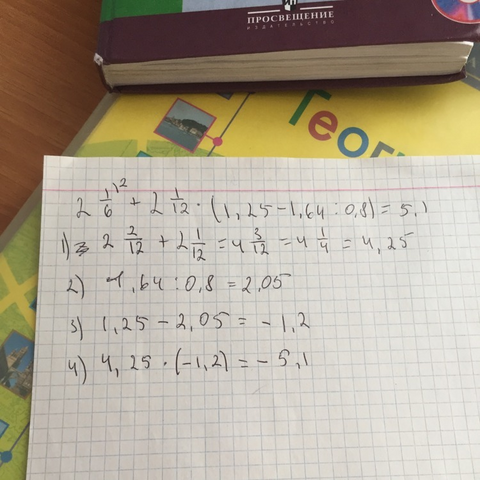 ПРОСВЕЩЕНИЕ
ИЗДАТЕЛЬСТВО
Геог
2 1/6 ^2 + 2 1/12 · (1,25 - 1,64 : 0,8) = 5,1
1) 2 2/12 + 2 1/12 = 4 3/12 = 4 1/4 = 4,25
2) 1,64 : 0,8 = 2,05
3) 1,25 - 2,05 = - 1,2
4) 4,25 · (-1,2) = - 5,1